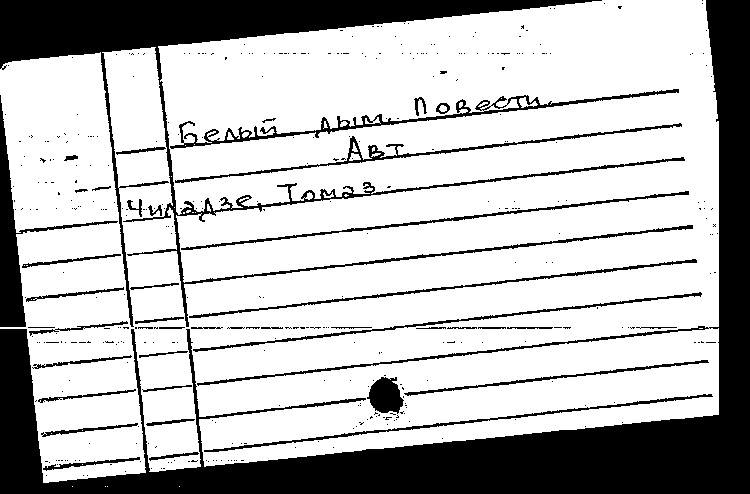 Белый дым. Повести.
Авт
Чиладзе, Томаз.